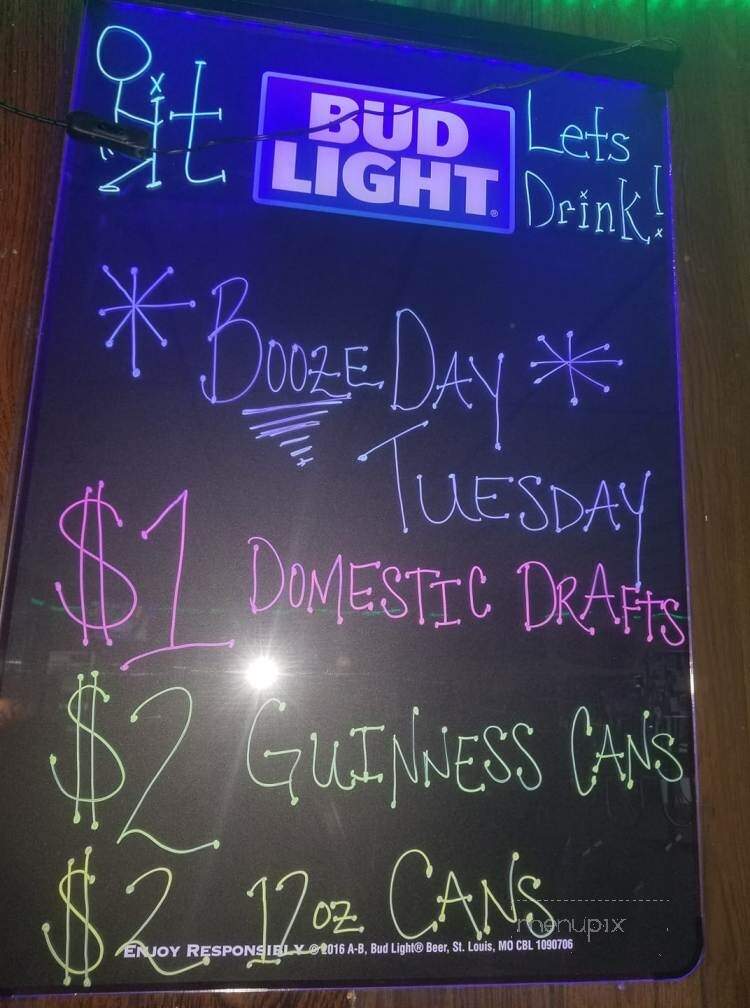 BUD
LIGHT®
Lets
Drink!
* Booze Day *
Tuesday
$1 Domestic Drafts
$2 Guinness Cans
$2 12oz Cans
menupix
Enjoy Responsibly © 2016 A-B, Bud Light® Beer, St. Louis, MO CBL 1090706